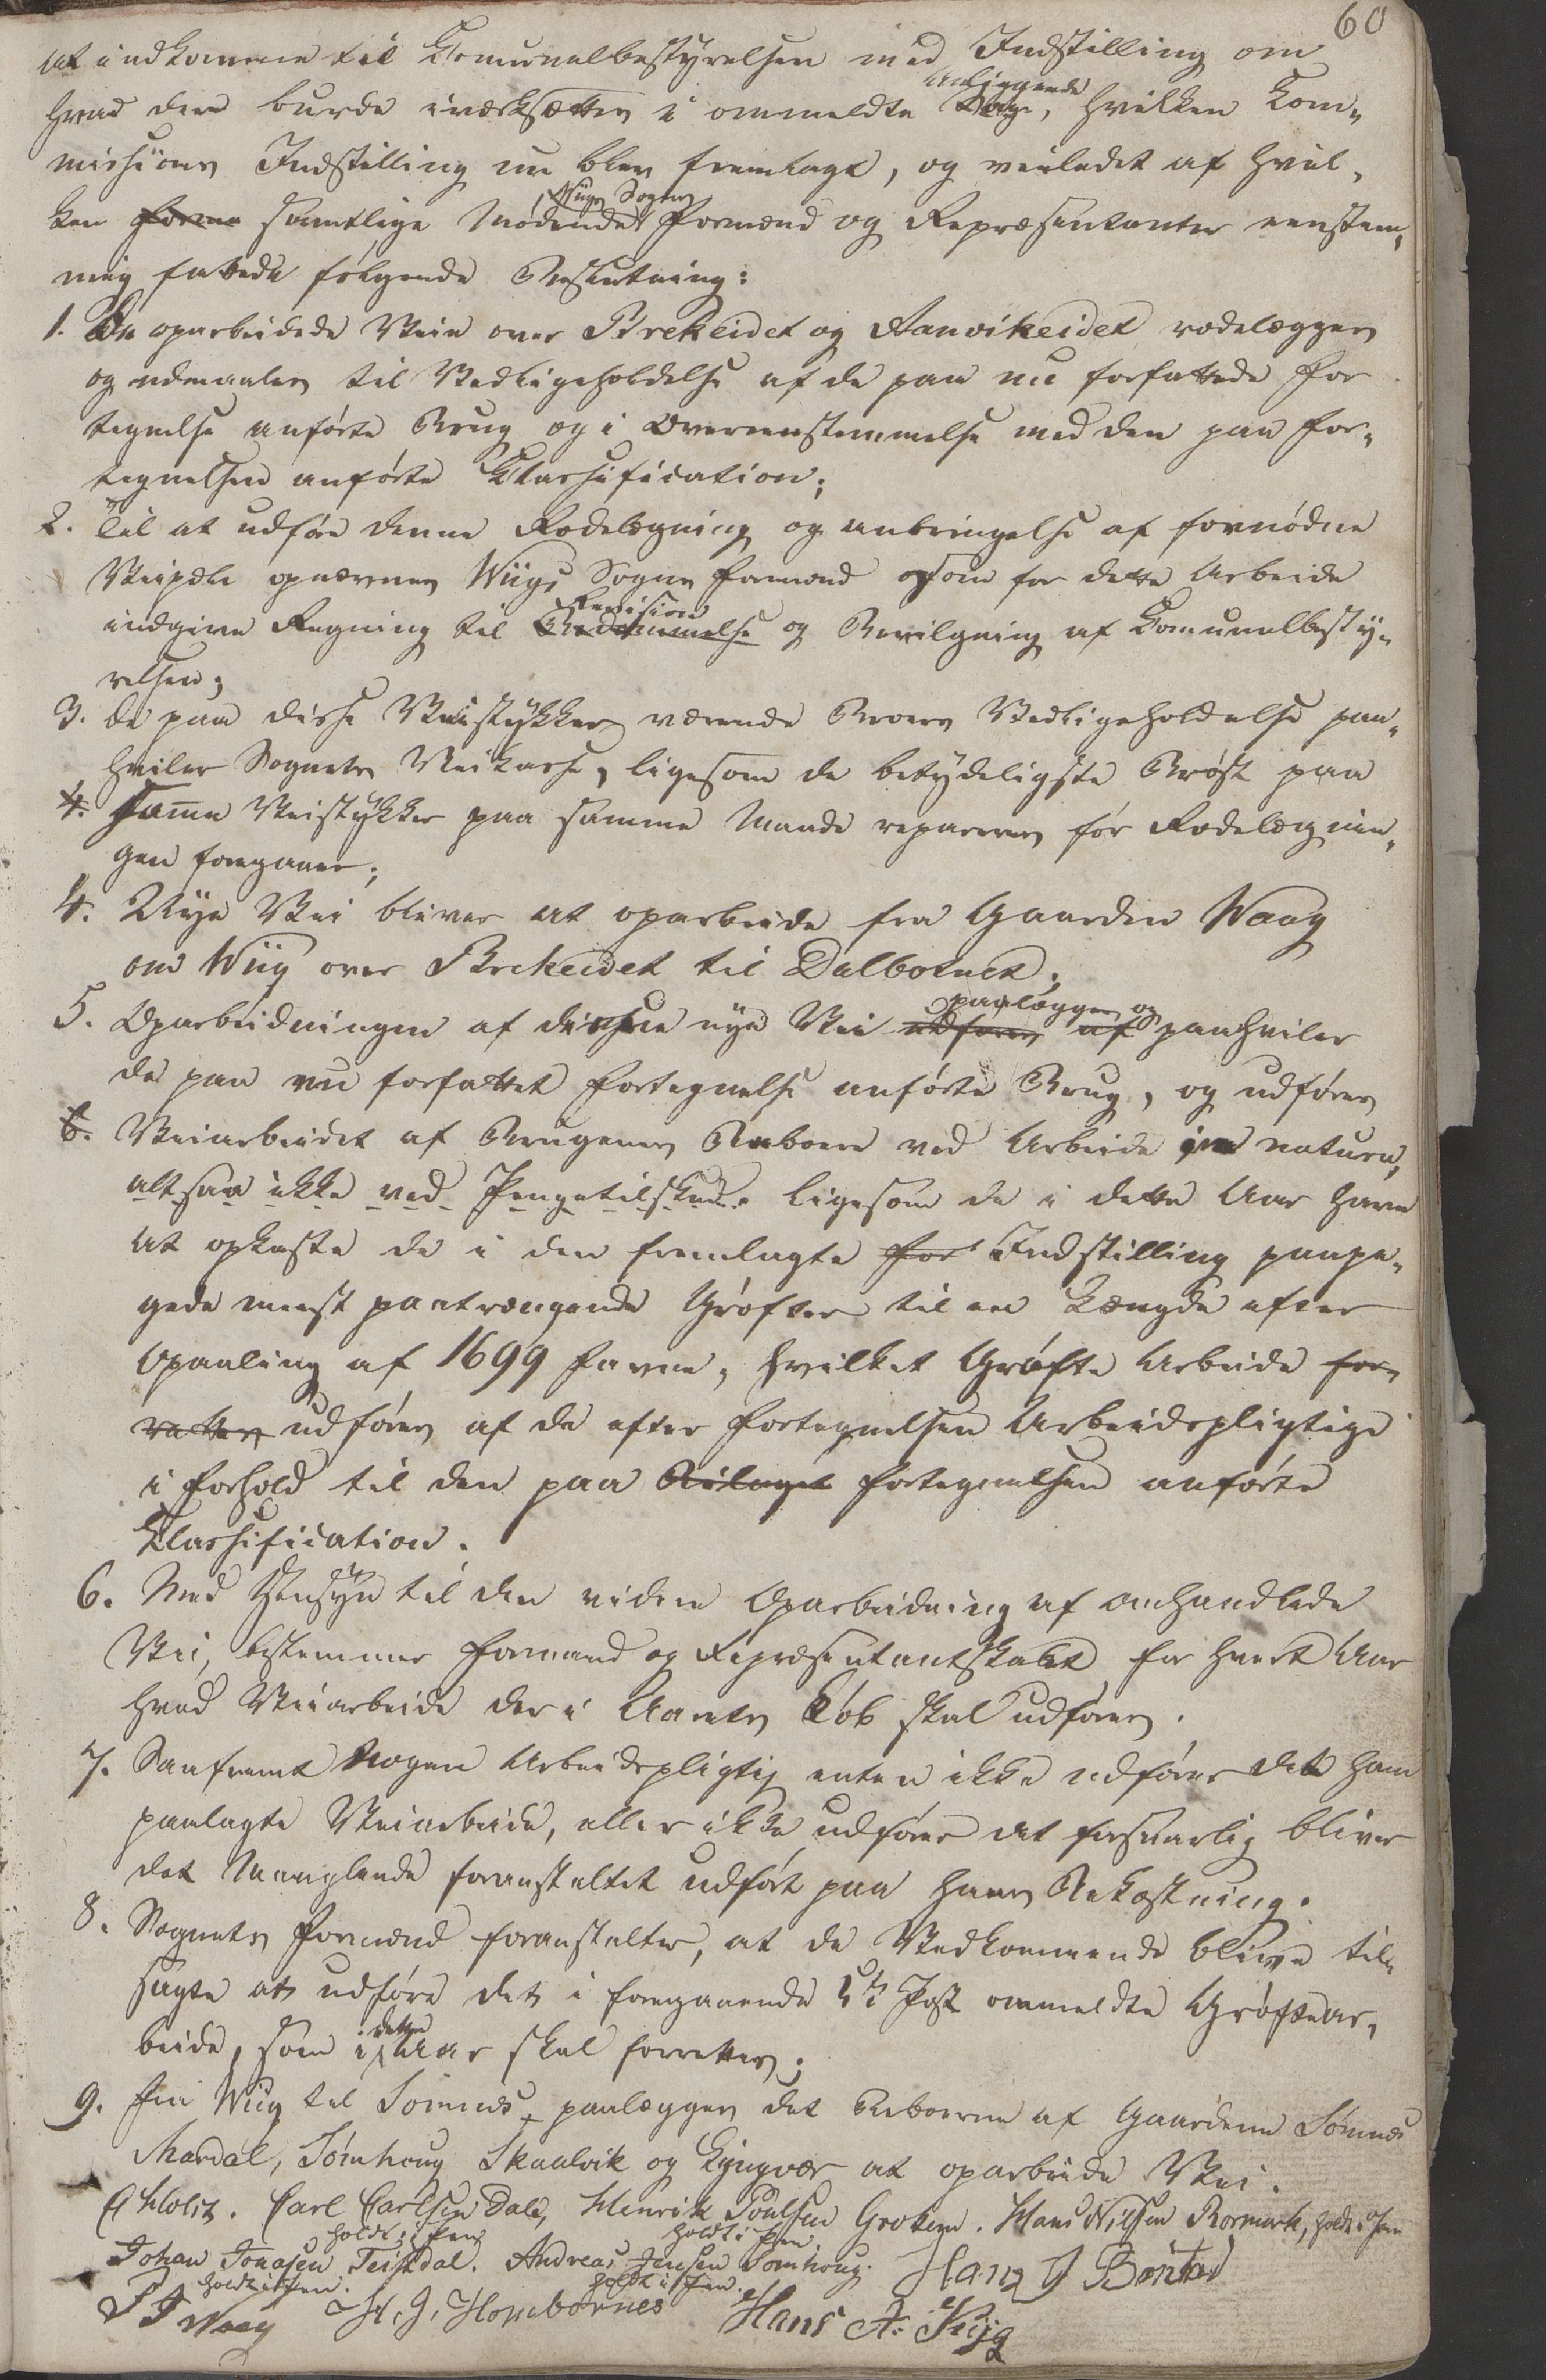 60
at indkomme til Comunalbestyrelsen med Indstilling om
hvad der burde iværksættes i ommeldte Anliggende Sag, hvilken Com-
missions Indstilling nu blev fremlagt, og veiledet af hvil-
ken samtlige Mødende Wiigs Sogns Formænd og Repræsentanter eenstem-
mig fattede følgende Beslutning:
1. De oparbeidede Veie over Brekeidet og Aanvikeidet rodelægges
og udmaales til Vedligeholdelse af de paa nu forfattede For
tegnelse anførte Brug og i Overeensstemmelse med den paa For-
tegnelsen anførte Classification;
2. Til at udføre denne Rodelægning og anbringelse af fornødne
Veipæle opnævnes Wiigs Sogns Formænd som for dette Arbeide
indgive Regning til Revision og Bevilgning af Comunalbesty-
relsen;
3. De paa disse Veistykker værende Broers Vedligeholdelse paa-
hviler Sognets Veikasse, ligesom de betydeligste Brøst paa
4. samme Veistykker paa samme Maade repareres før Rodelægnin-
gen foregaaer;
4. Nye Vei bliver at oparbeide fra Gaarden Waag
om Wiig over Brekeidet til Dalbotnet;
5. Oparbeidningen af disse nye Vei udføres af paalægges og paahviler
de paa nu forfattet Fortegnelse anførte Brug, og udføres
6. Veiarbeidet af Brugenes Beboere ved Arbeide in natura,
altsaa ikke ved Pengetilskud. ligesom de i dette Aar have
at opkaste de i den fremlagte for Indstilling paape-
gede meest paatrængende Grøfter til en Længde efter
Opmaaling af 1699 Favne, hvilket Grøfte Arbeide for-
rettes udføres af de efter Fortegnelsen Arbeidspligtige
i Forhold til den paa Bilaget Fortegnelsen anførte
Classification.
6. Med Hensyn til den videre Oparbeidning af omhandlede
Vei, bestemmer Formænd og Repræsentantskabet for hvert Aar
hvad Veiarbeide der i Aarets Løb skal udføres.
7. Saafremt Nogen Arbeidspligtig enten ikke udfører det ham
paalagte Veiarbeide, eller ikke udfører det forsvarlig bliver
det Manglende foranstaltet udført paa hans Bekostning.
8. Sognets Formænd foranstalter, at de Vedkommende blive til-
sagte at udføre det i foregaaende 5te Post ommeldte Grøftear-
beide, som i dette Aar skal forrettes;
9. Fra Wiig til Sømnes paalægges det Beboerne af Gaardene Sømnes
Mardal, Sørnhoug Skaalvik og Lyngvær at oparbeide Vei.
C Holst. Carl Carlsen Dale, Henrik Poulsen Grotem. Hans Nilsen Rormark, holdt i Pen
holdt i Pen holdt i Pen
Johan Jonasen Teistdal. Andreas Jensen Sørnhoug. Hans J Bøntad
holdt i Pen. holdt i Pen.
P J Waag H. J. Hombornes Hans A. Wiig